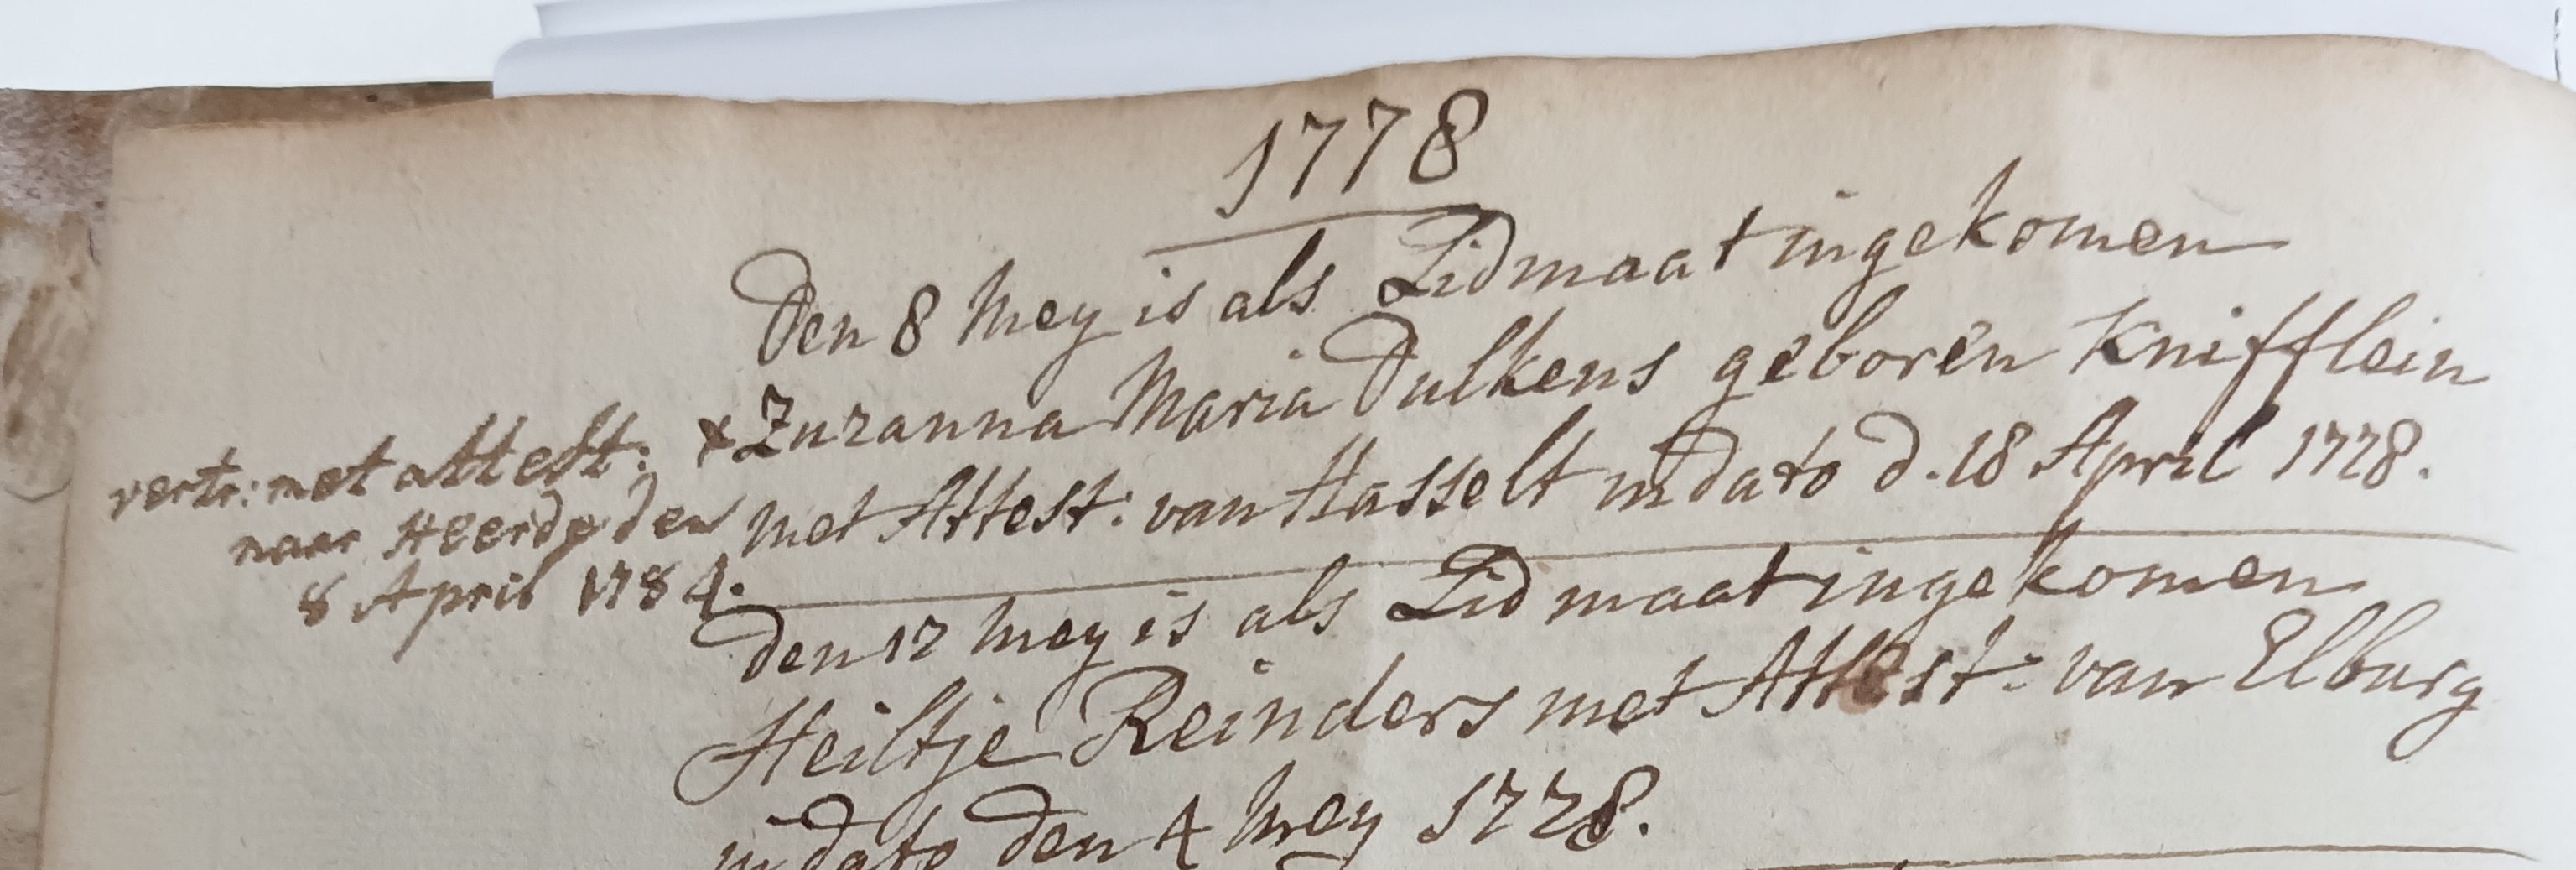 1778
Den 8 Mey is als Lidmaat ingekomen
x Zuzanna Maria Dulkens geboren Knifflein
met Attest: van Hasselt in dato d. 18 April 1778.
vertr: met attest:
naar Heerde den
8 April 1784.
den 17 Mey is als Lidmaat ingekomen
Heiltje Reinders met Attest: van Elburg
in dato den 4 Mey 1778.